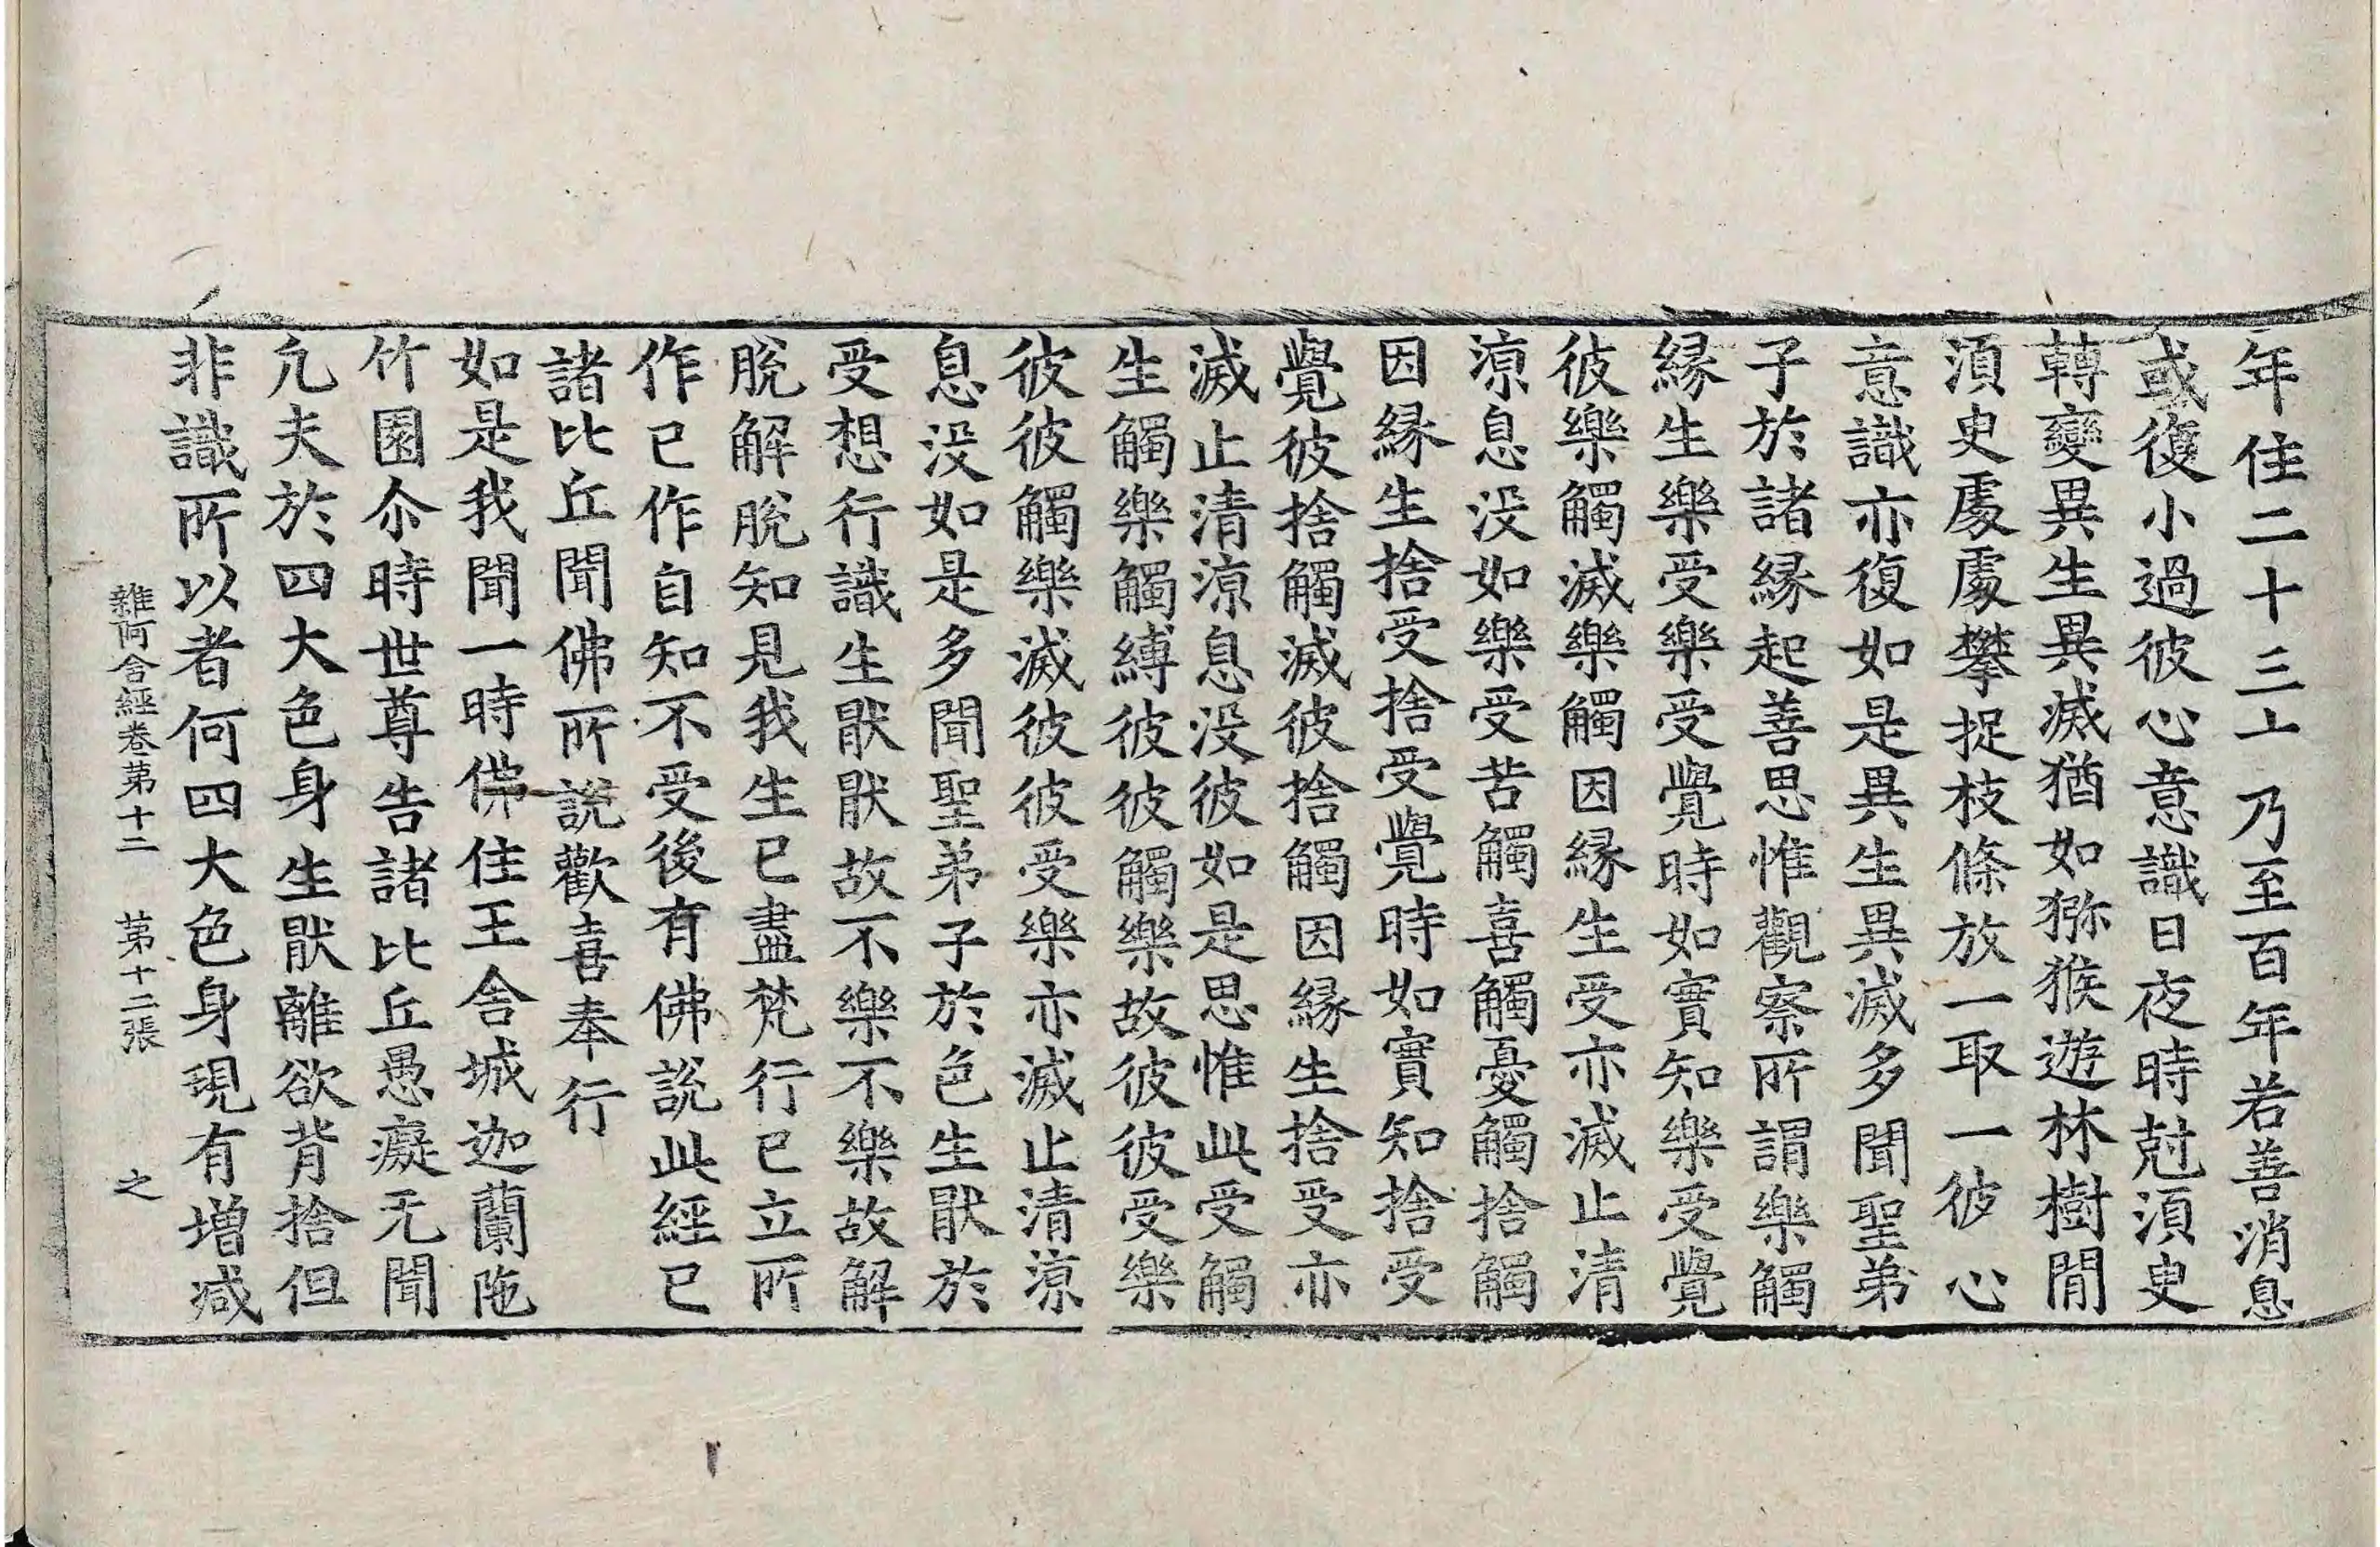 年住二十三十 乃至百年若善消息
或復小過彼心意識日夜時尅湏臾
轉變異生異滅猶如獼猴遊林樹間
湏臾處處攀捉枝條放一取一彼心
意識亦復如是異生異滅多聞聖弟
子於諸縁起善思惟觀察所謂樂觸
縁生樂受樂受覺時如實知樂受覺
彼樂觸滅樂觸因縁生受亦滅止清
涼息没如樂受苦觸喜觸憂觸捨觸
因縁生捨受捨受覺時如實知捨受
覺彼捨觸滅彼捨觸因縁生捨受亦
滅止清涼息没彼如是思惟此受觸
生觸樂觸縛彼彼觸樂故彼彼受樂
彼彼觸樂滅彼彼受樂亦滅止清涼
息没如是多聞聖弟子於色生猒於
受想行識生猒猒故不樂不樂故解
脫解脫知見我生已盡梵行已立所
作已作自知不受後有佛說此經已
諸比丘聞佛所說歡喜奉行
如是我聞一時佛住王舍城迦蘭陁
竹園尒時世尊告諸比丘愚癡无聞
凡夫於四大色身生猒離欲背捨但
非識所以者何四大色身現有增減
雜阿含經卷第十二 第十二張 之